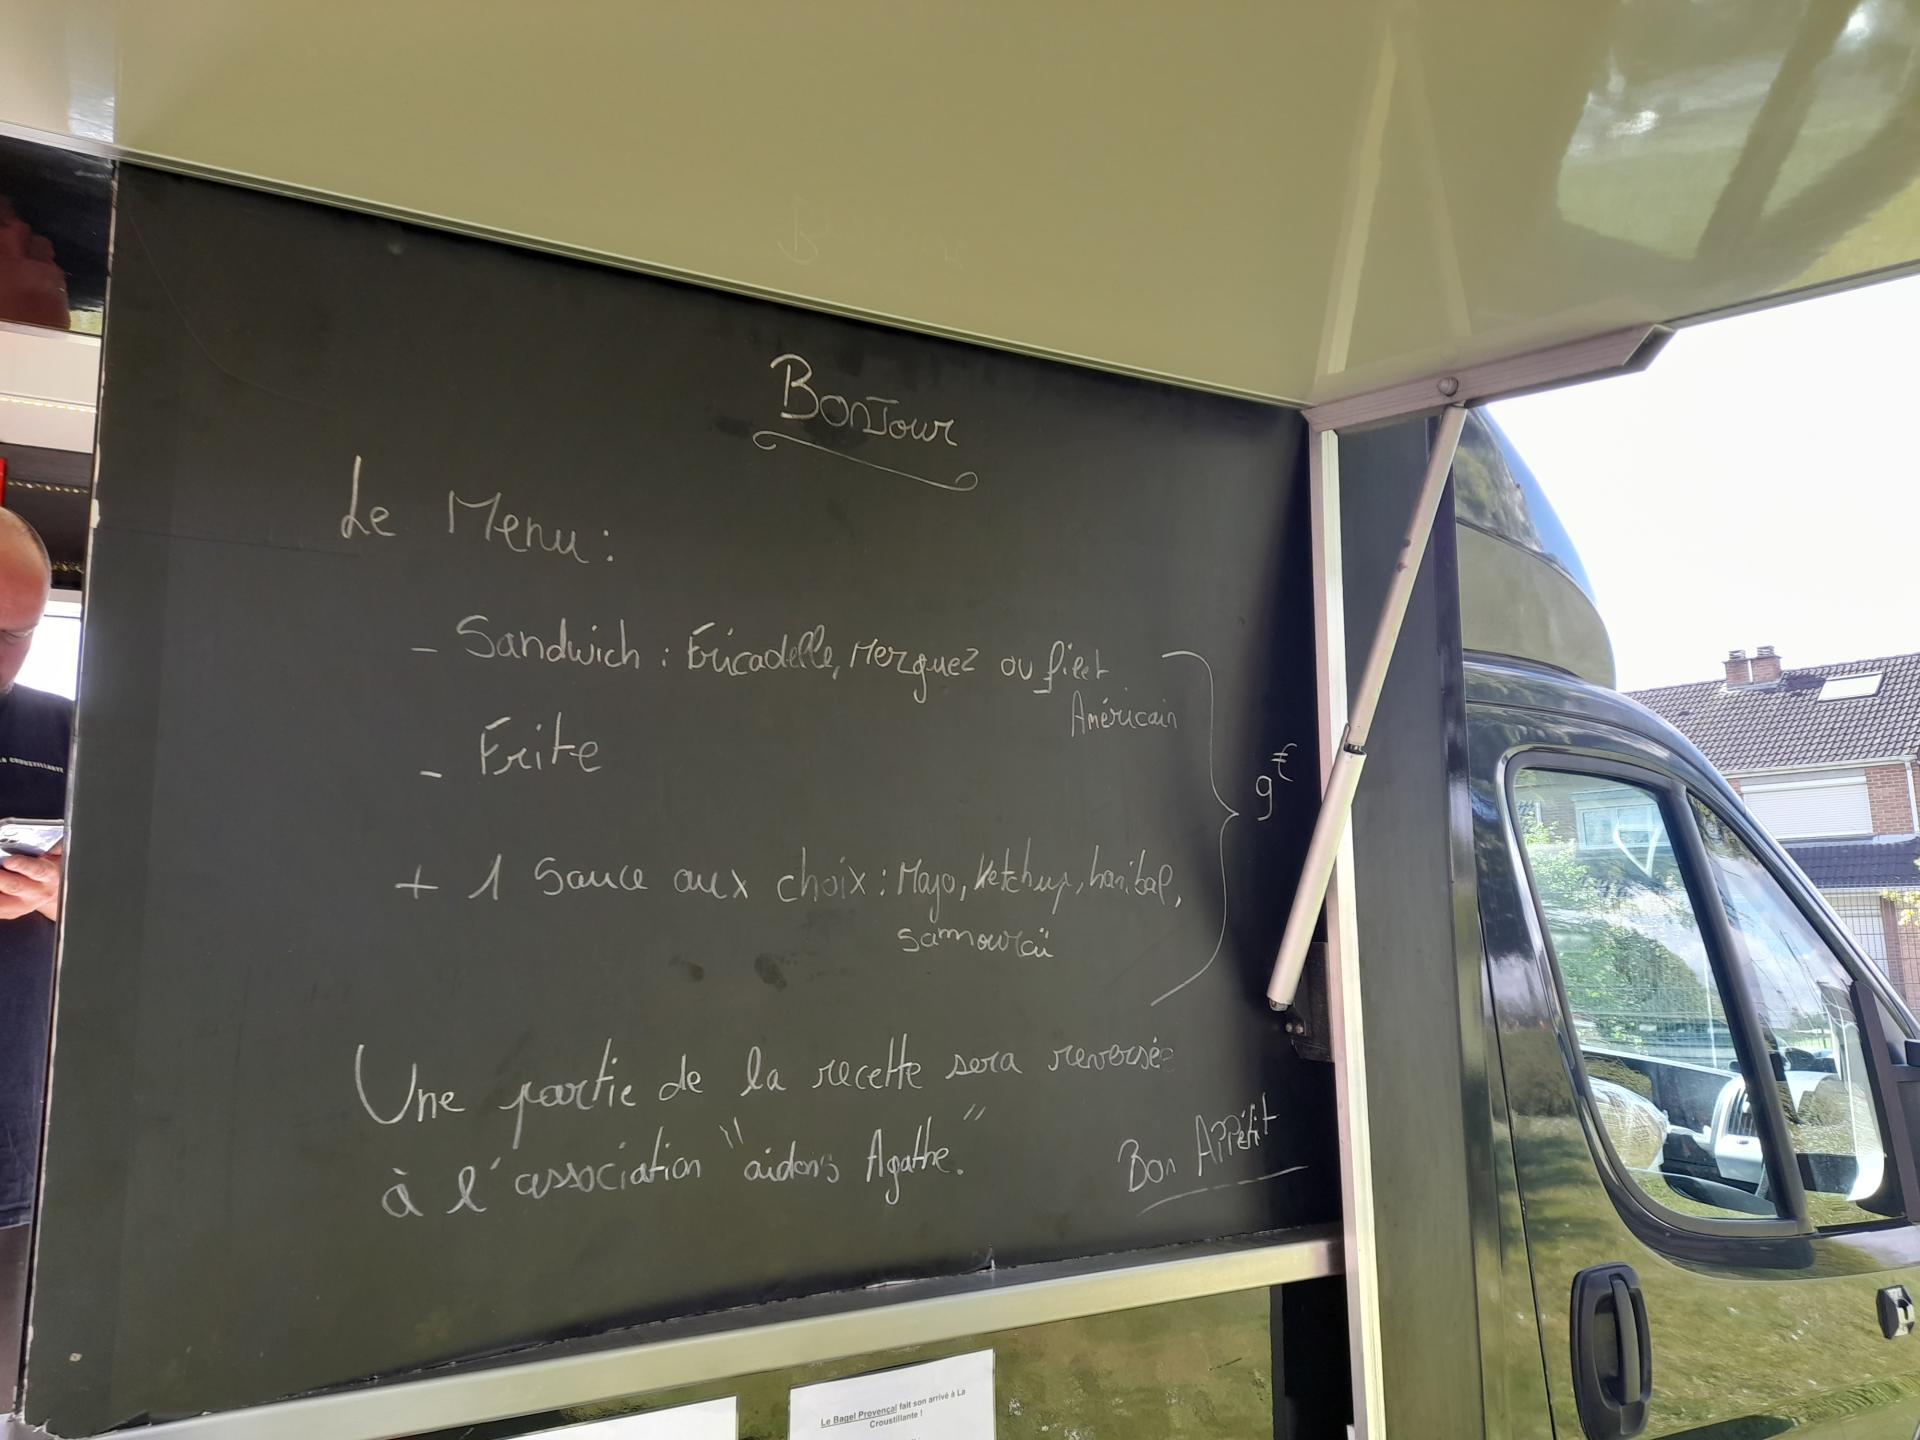 BonJour
Le Menu :
- Sandwich : Fricadelle, Merguez ou filet
Américain
- Frite
+ 1 Sauce aux choix : Mayo, Ketchup, hanibal,
samouraï
9€
Une partie de la recette sera reversée
à l'association "aidons Agathe."
Bon Appétit
LA CROUSTILLANTE
Le Bagel Provençal fait son arrivé à La
Croustillante !